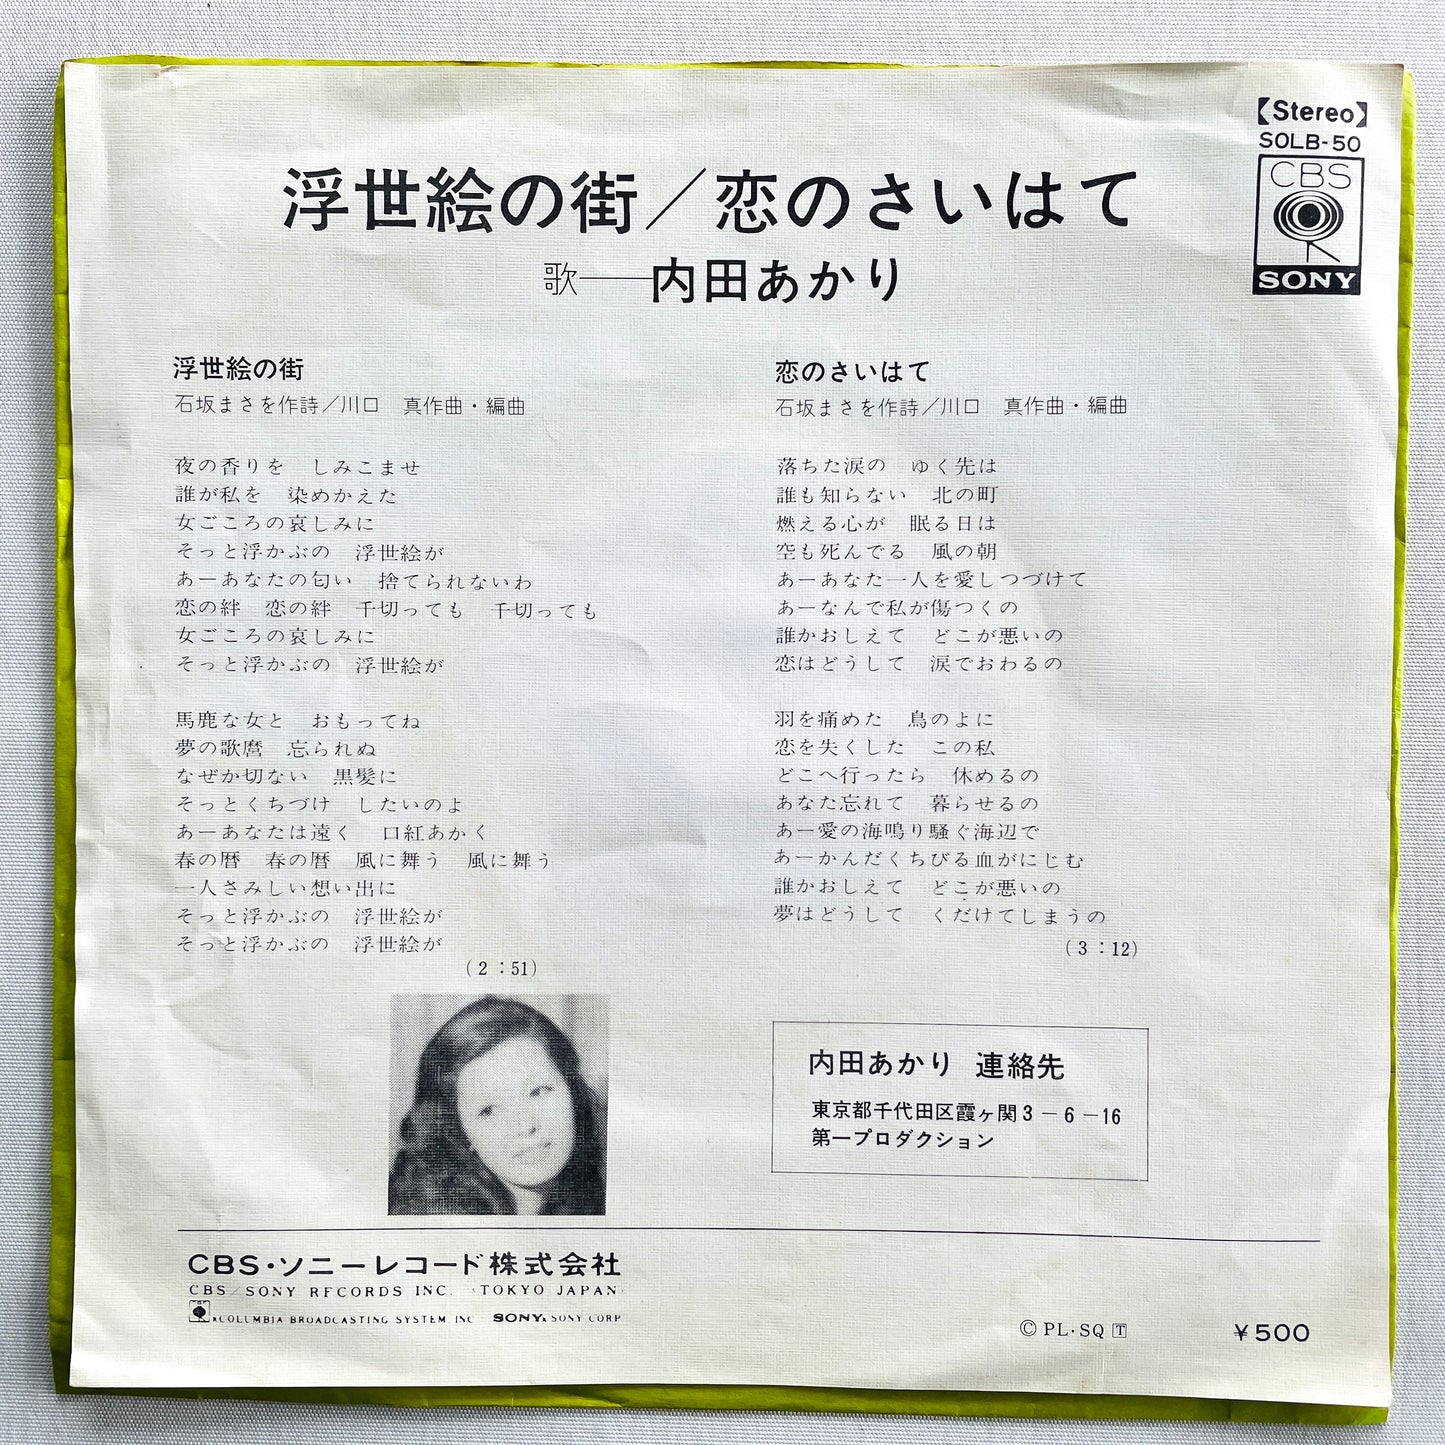 【Stereo】
SOLB-50
CBS
SONY
浮世絵の街／恋のさいはて
歌──内田あかり
浮世絵の街
石坂まさを作詩／川口　真作曲・編曲
夜の香りを　しみこませ
誰が私を　染めかえた
女ごころの哀しみに
そっと浮かぶの　浮世絵が
あーあなたの匂い　捨てられないわ
恋の絆　恋の絆　千切っても　千切っても
女ごころの哀しみに
そっと浮かぶの　浮世絵が
馬鹿な女と　おもってね
夢の歌麿　忘られぬ
なぜか切ない　黒髪に
そっとくちづけ　したいのよ
あーあなたは遠く　口紅あかく
春の暦　春の暦　風に舞う　風に舞う
一人さみしい想い出に
そっと浮かぶの　浮世絵が
そっと浮かぶの　浮世絵が
(2：51)
恋のさいはて
石坂まさを作詩／川口　真作曲・編曲
落ちた涙の　ゆく先は
誰も知らない　北の町
燃える心が　眠る日は
空も死んでる　風の朝
あーあなた一人を愛しつづけて
あーなんで私が傷つくの
誰かおしえて　どこが悪いの
恋はどうして　涙でおわるの
羽を痛めた　鳥のよに
恋を失くした　この私
どこへ行ったら　休めるの
あなた忘れて　暮らせるの
あー愛の海鳴り騒ぐ海辺で
あーかんだくちびる血がにじむ
誰かおしえて　どこが悪いの
夢はどうして　くだけてしまうの
(3：12)
内田あかり 連絡先
東京都千代田区霞ヶ関3－6－16
第一プロダクション
CBS・ソニーレコード株式会社
CBS/SONY RECORDS INC. (TOKYO JAPAN)
COLUMBIA BROADCASTING SYSTEM INC SONY SONY CORP
Ⓒ PL・SQ 🅃
￥500